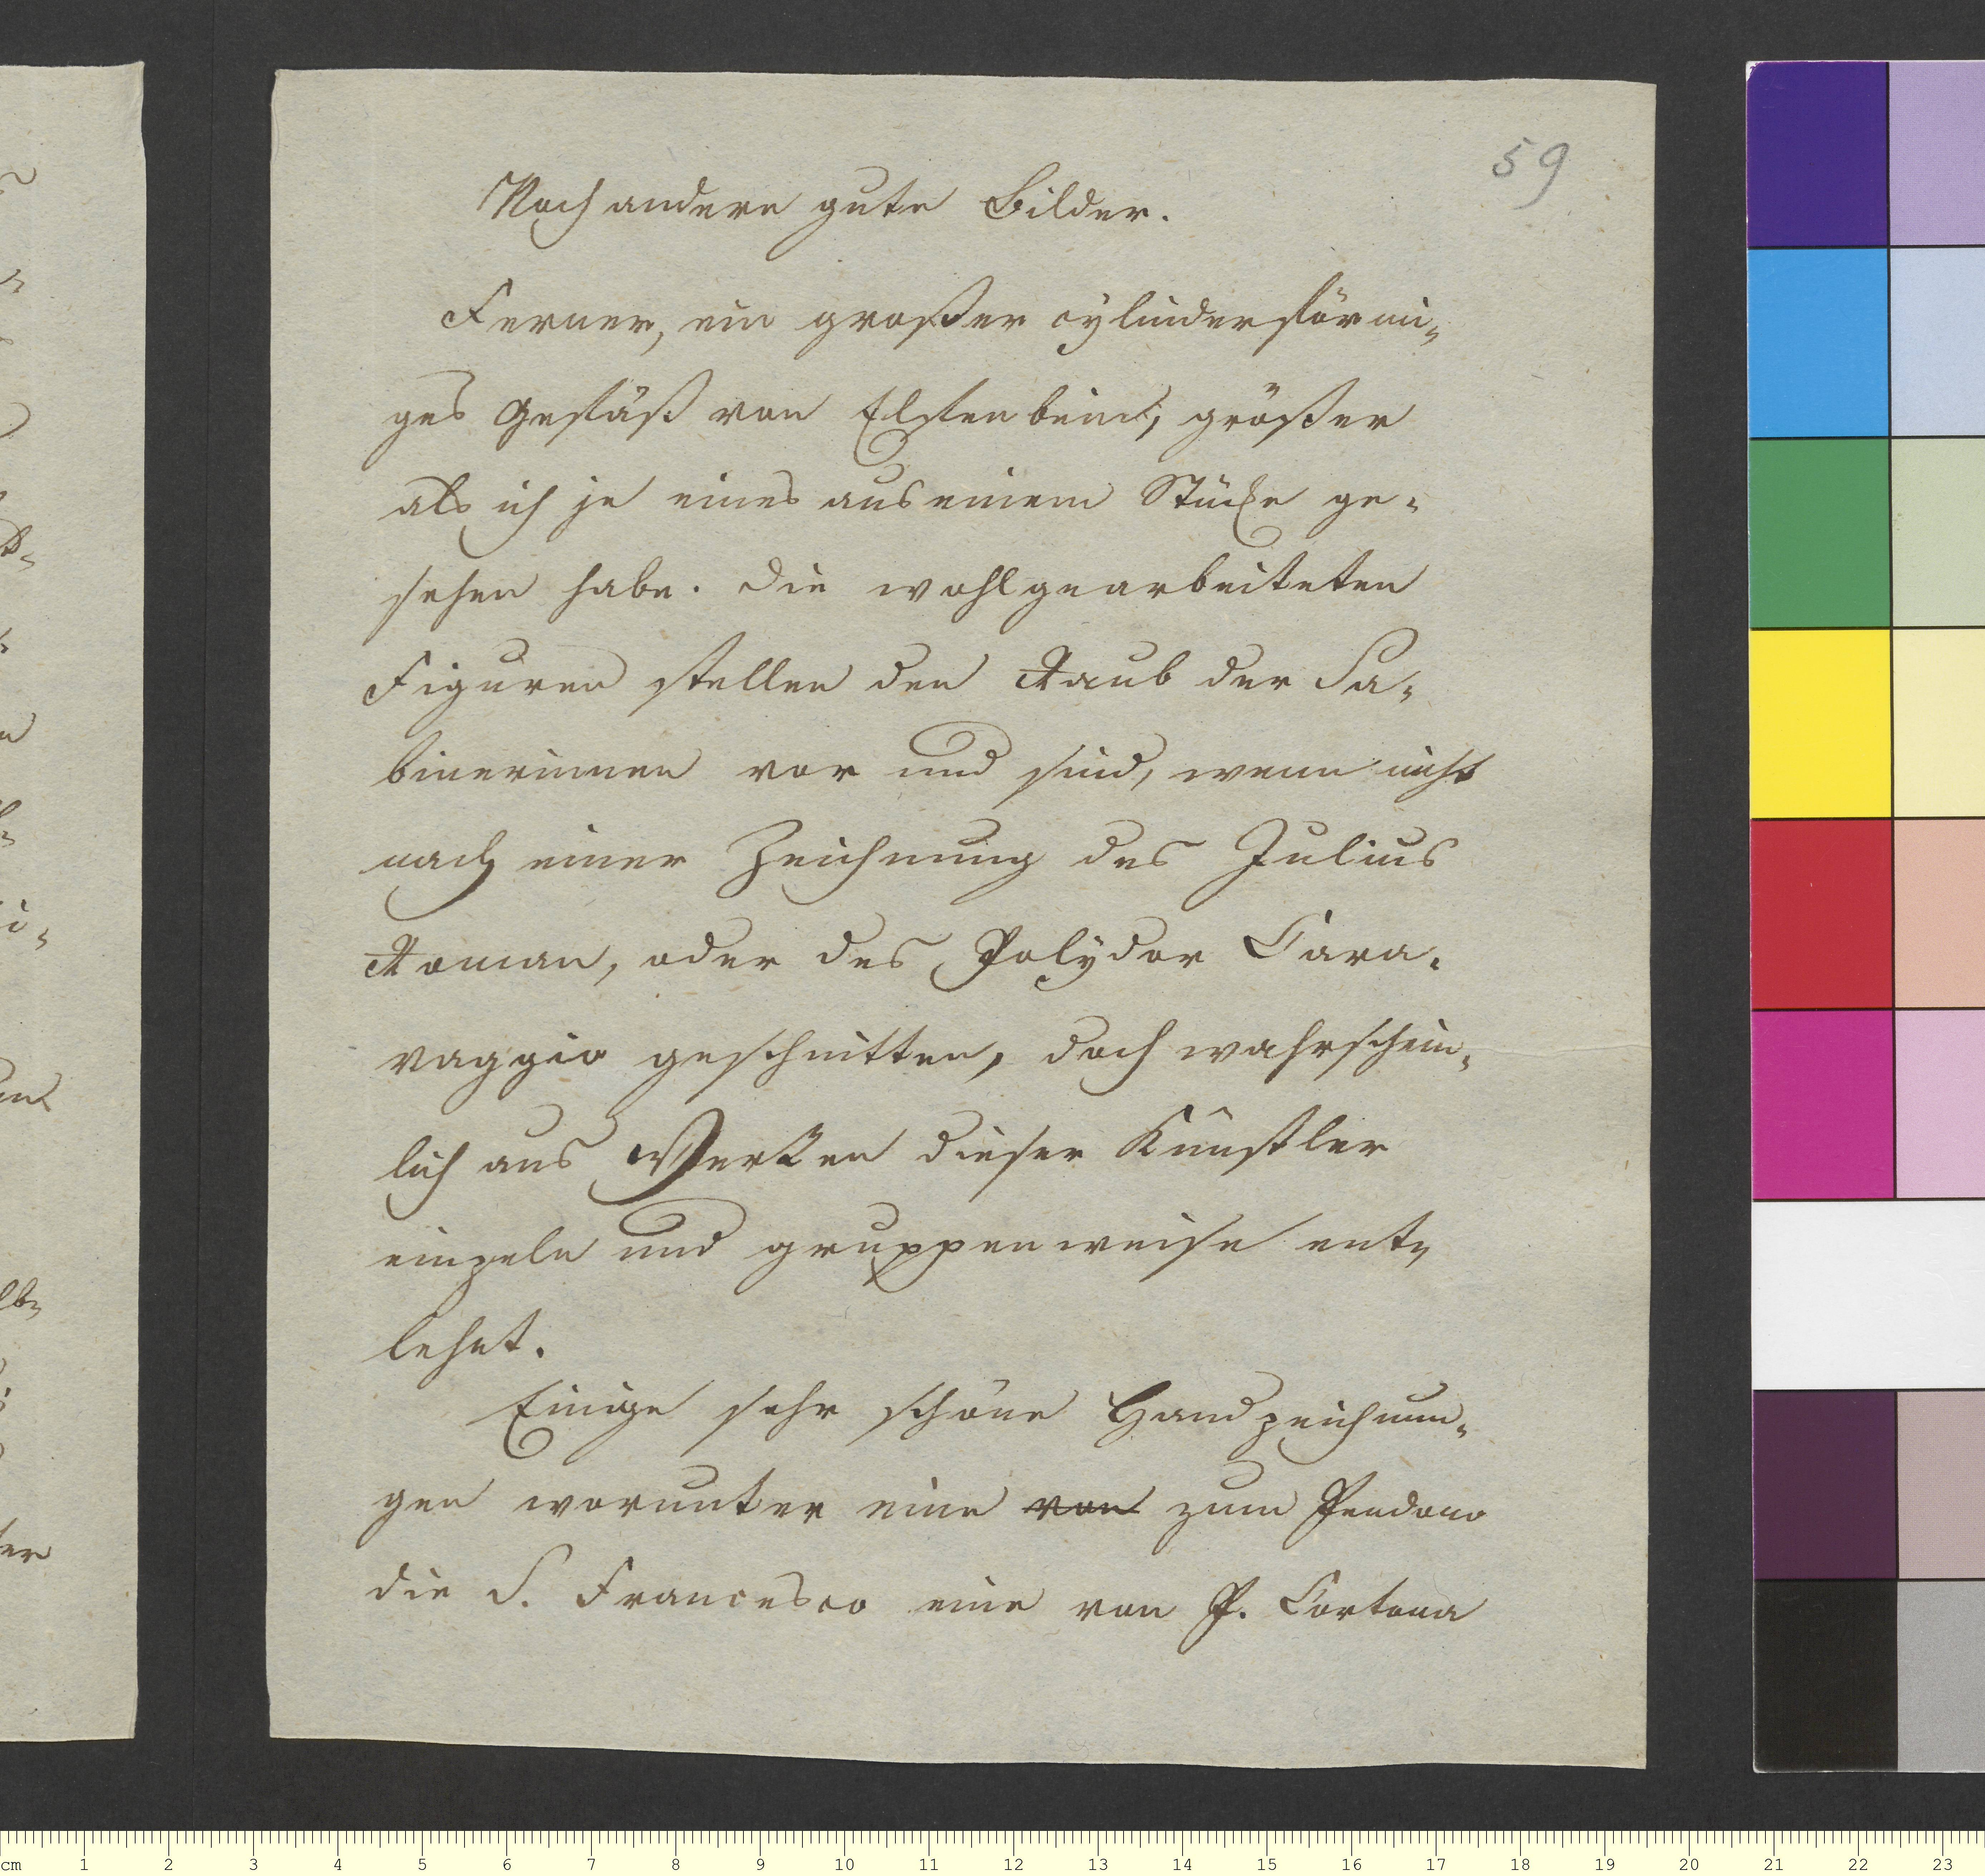 59
Noch andere gute Bilder.
Ferner, ein großer cylinderförmi-
ges Gefäß von Elfenbein, größer
als ich je eines aus einem Stücke ge-
sehen habe. Die wohlgearbeiteten
Figuren stellen den Raub der Sa-
binerinnen vor und sind, wenn nicht
nach einer Zeichnung des Julius
Roman, oder des Polydor Cara-
vaggio geschnitten, doch wahrschein-
lich aus Werken dieser Künstler
einzeln und gruppenweise ent-
lehnt.
Einige sehr schöne Handzeichnun-
gen worunter eine von zum Perdono
die S. Francesco eine von P. Cortona
cm 1 2 3 4 5 6 7 8 9 10 11 12 13 14 15 16 17 18 19 20 21 22 23